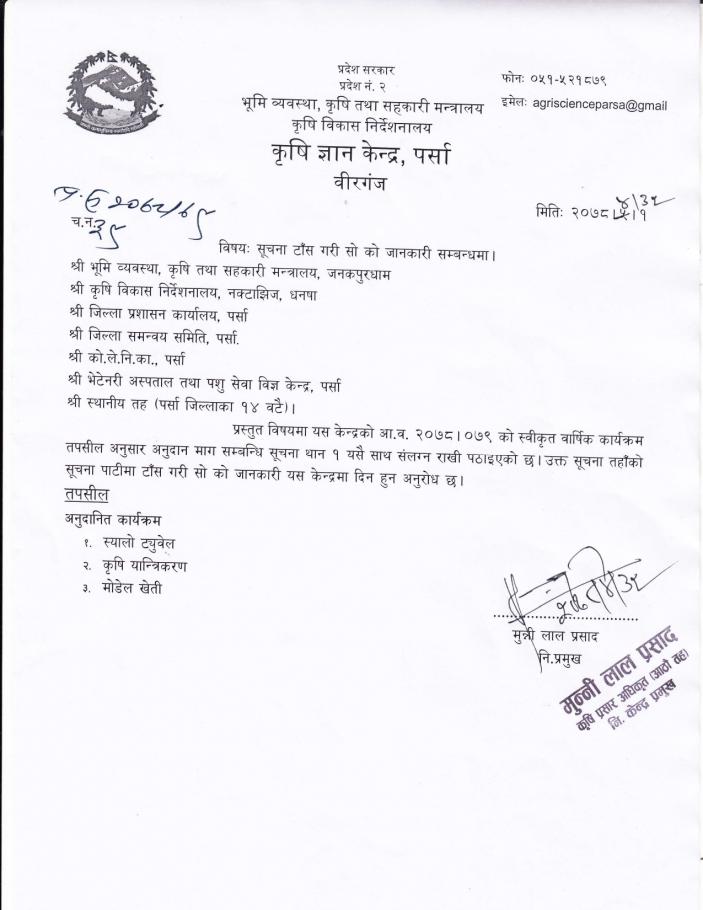 प्रदेश सरकार
प्रदेश नं. २
भूमि व्यवस्था, कृषि तथा सहकारी मन्त्रालय
कृषि विकास निर्देशनालय
कृषि ज्ञान केन्द्र, पर्सा
वीरगंज
फोनः ०५१-५२१८७९
इमेलः agrisciencepar​sa@gmail
च.न.३९
मितिः २०७८।५।१
४।३२
विषयः सूचना टाँस गरी सो को जानकारी सम्बन्धमा।
श्री भूमि व्यवस्था, कृषि तथा सहकारी मन्त्रालय, जनकपुरधाम
श्री कृषि विकास निर्देशनालय, नक्टाझिज, धनषा
श्री जिल्ला प्रशासन कार्यालय, पर्सा
श्री जिल्ला समन्वय समिति, पर्सा.
श्री को.ले.नि.का., पर्सा
श्री भेटेनरी अस्पताल तथा पशु सेवा विज्ञ केन्द्र, पर्सा
श्री स्थानीय तह (पर्सा जिल्लाका १४ वटै)।
प्रस्तुत विषयमा यस केन्द्रको आ.व. २०७८।०७९ को स्वीकृत वार्षिक कार्यक्रम
तपसील अनुसार अनुदान माग सम्बन्धि सूचना थान १ यसै साथ संलग्न राखी पठाइएको छ। उक्त सूचना तहाँको
सूचना पाटीमा टाँस गरी सो को जानकारी यस केन्द्रमा दिन हुन अनुरोध छ।
तपसील
अनुदानित कार्यक्रम
१. स्यालो ट्युवेल
२. कृषि यान्त्रिकरण
३. मोडेल खेती
मुन्नी लाल प्रसाद
नि.प्रमुख
मुन्नी लाल प्रसाद
कृषि प्रसार अधिकृत (आठौं तह)
नि. केन्द्र प्रमुख